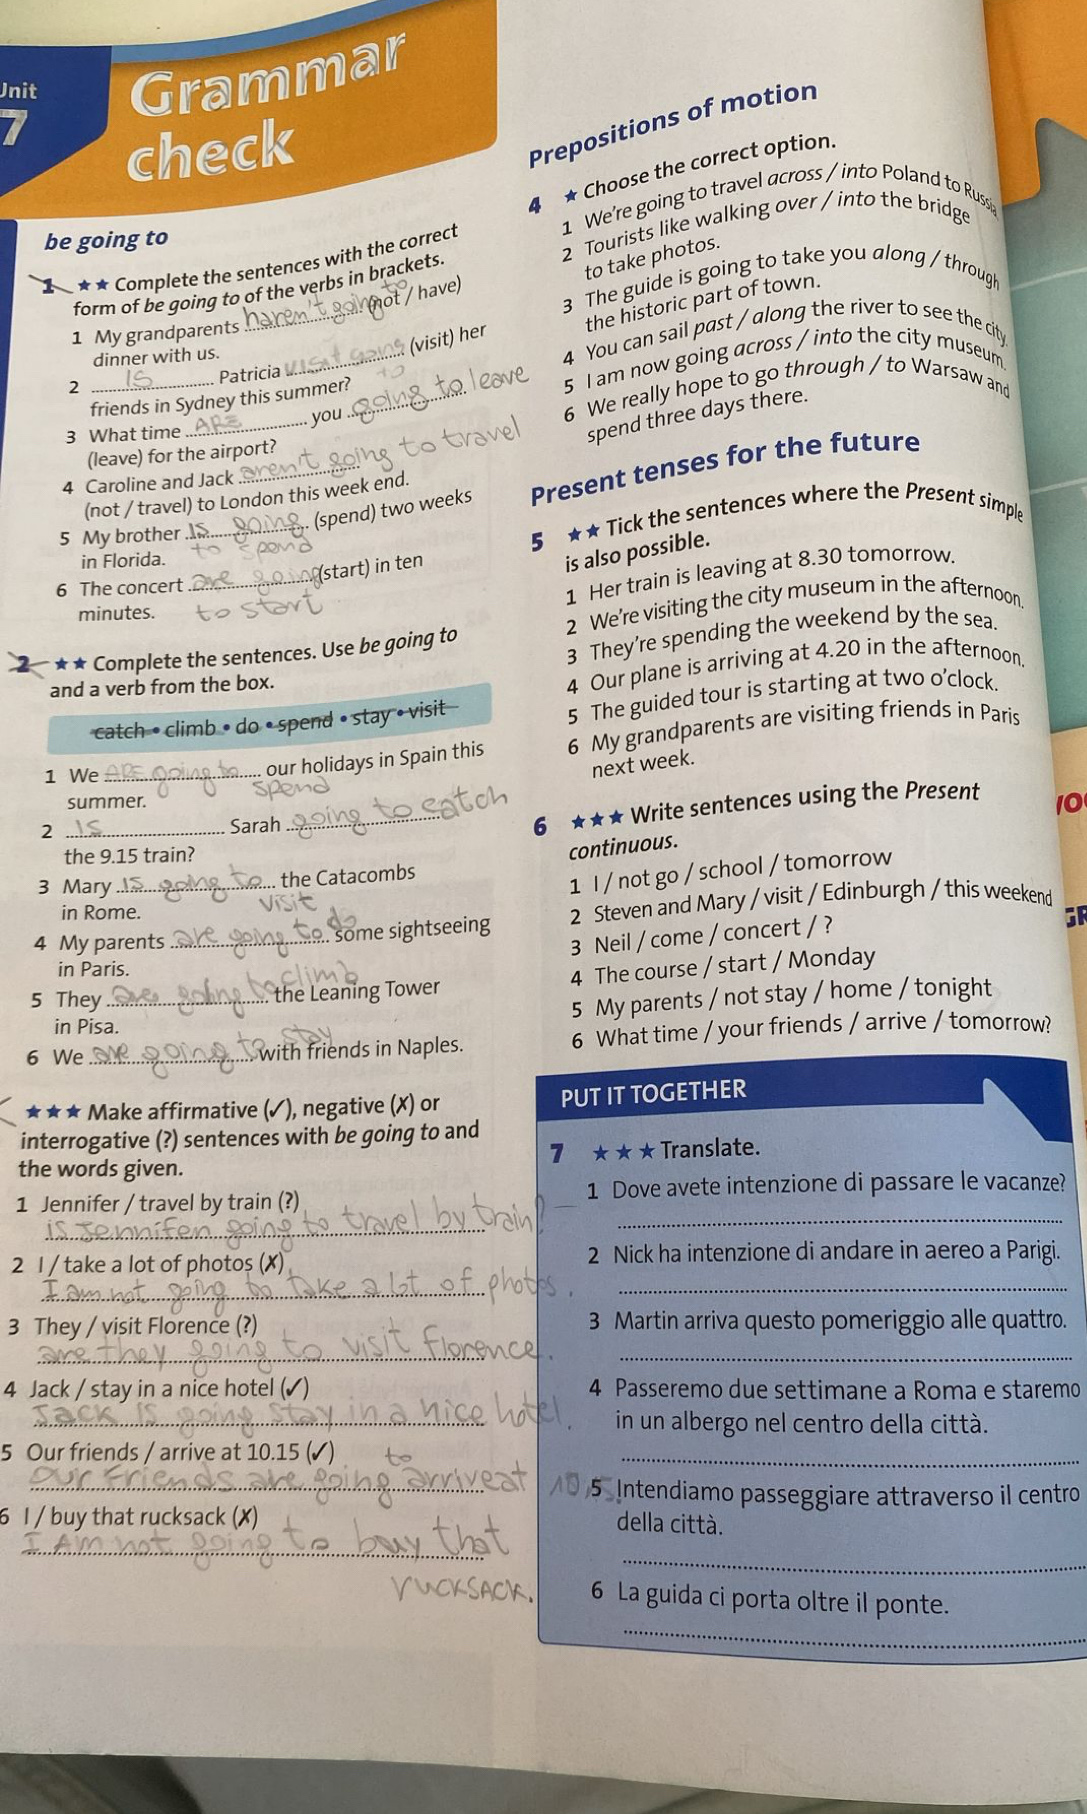 Unit
7
Grammar
check
be going to
1 ★★ Complete the sentences with the correct
form of be going to of the verbs in brackets.
1 My grandparents haven't going to (not / have)
dinner with us.
2 IS Patricia visit going to (visit) her
friends in Sydney this summer?
3 What time ARE you going to leave
(leave) for the airport?
4 Caroline and Jack aren't going to travel
(not / travel) to London this week end.
5 My brother IS going (spend) two weeks
to spend
in Florida.
6 The concert are going (start) in ten
minutes. to start
2 ★★ Complete the sentences. Use be going to
and a verb from the box.
catch • climb • do • spend • stay • visit
1 We ARE going to our holidays in Spain this
spend
summer.
2 IS Sarah going to catch
the 9.15 train?
3 Mary IS going to the Catacombs
visit
in Rome.
4 My parents are going to do some sightseeing
in Paris.
5 They are going to climb the Leaning Tower
in Pisa.
6 We are going to stay with friends in Naples.
★★★ Make affirmative (✓), negative (✗) or
interrogative (?) sentences with be going to and
the words given.
1 Jennifer / travel by train (?)
is Jennifen going to travel by train?
2 I / take a lot of photos (✗)
I am not going to take a lot of photos.
3 They / visit Florence (?)
are they going to visit florence.
4 Jack / stay in a nice hotel (✓)
Jack IS going stay in a nice hotel.
5 Our friends / arrive at 10.15 (✓)
to
our Friends are going arrive at 10.15.
6 I / buy that rucksack (✗)
I AM not going to buy that
rucksack.
Prepositions of motion
4 ★ Choose the correct option.
1 We're going to travel across / into Poland to Russia.
2 Tourists like walking over / into the bridge
to take photos.
3 The guide is going to take you along / through
the historic part of town.
4 You can sail past / along the river to see the city.
5 I am now going across / into the city museum.
6 We really hope to go through / to Warsaw and
spend three days there.
Present tenses for the future
5 ★★ Tick the sentences where the Present simple
is also possible.
1 Her train is leaving at 8.30 tomorrow.
2 We're visiting the city museum in the afternoon.
3 They're spending the weekend by the sea.
4 Our plane is arriving at 4.20 in the afternoon.
5 The guided tour is starting at two o'clock.
6 My grandparents are visiting friends in Paris
next week.
6 ★★★ Write sentences using the Present
continuous.
1 I / not go / school / tomorrow
2 Steven and Mary / visit / Edinburgh / this weekend
3 Neil / come / concert / ?
4 The course / start / Monday
5 My parents / not stay / home / tonight
6 What time / your friends / arrive / tomorrow?
PUT IT TOGETHER
7 ★★★ Translate.
1 Dove avete intenzione di passare le vacanze?
2 Nick ha intenzione di andare in aereo a Parigi.
3 Martin arriva questo pomeriggio alle quattro.
4 Passeremo due settimane a Roma e staremo
in un albergo nel centro della città.
5 Intendiamo passeggiare attraverso il centro
della città.
6 La guida ci porta oltre il ponte.